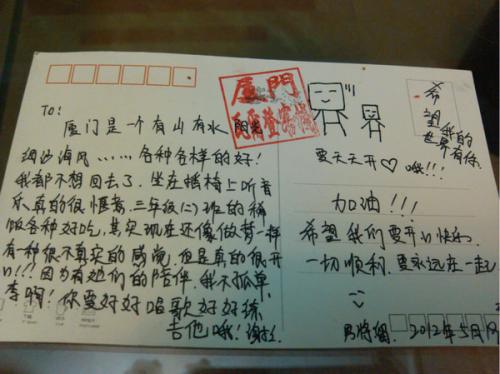 TO:
厦门是一个有山有水 阳光
细沙海风……各种各样的好!
我都不想回去了.坐在摇椅上听音
乐真的很惬意.三年级(二)班的稀
饭各种好吃,其实现在还像做梦一样
有一种很不真实的感觉.但是真的很开
心!!!因为有她们的陪伴,我不孤单.
李啊!你要好好唱歌好好练
吉他哦!谢
厦門
希望我的
世界有你
要天天开♡哦!!!
加油!!!
希望我们要开心快乐
一切顺利.要永远在一起
2012年5月